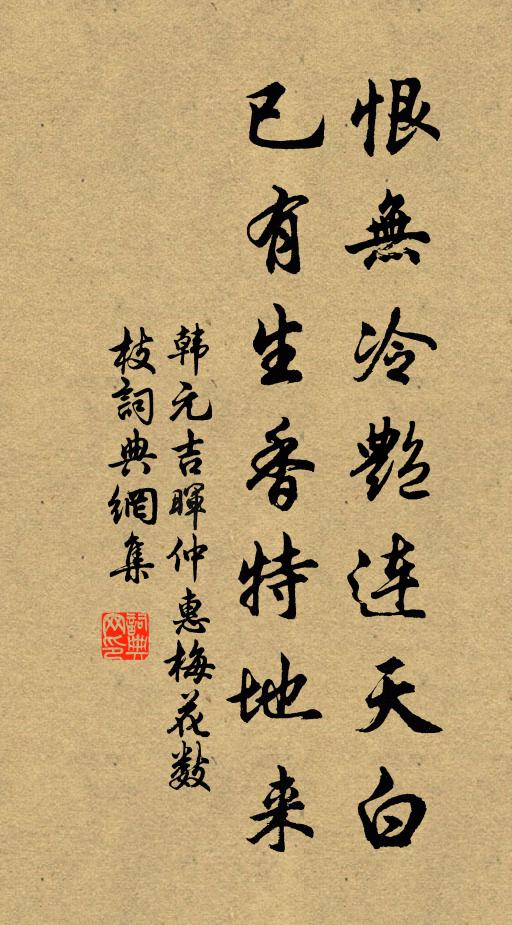 恨無冷艷连天白
已有生香特地来
韩元吉暉仲惠梅花数
枝詞典網集
詞典網印